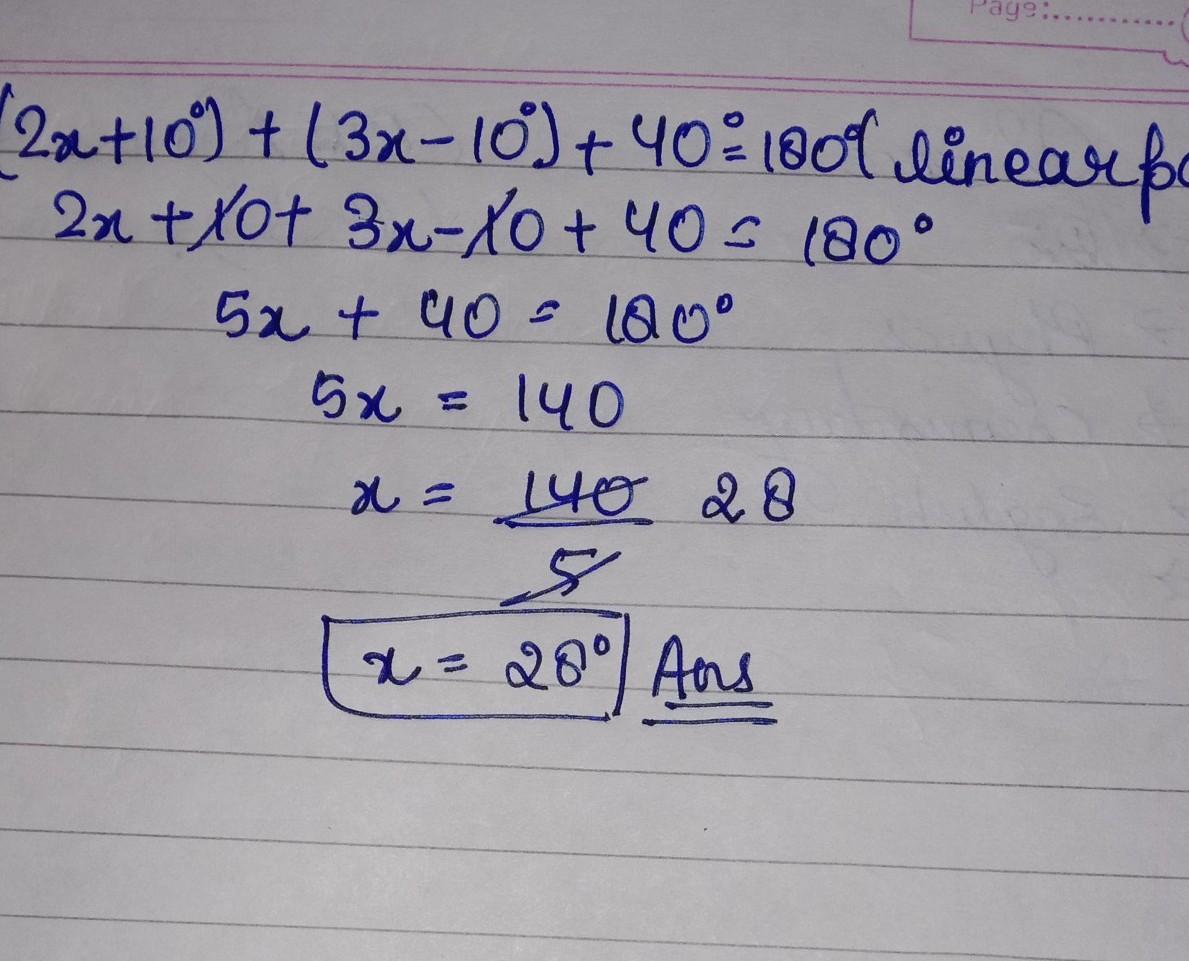 Page:............
(2x+10°) + (3x-10°) + 40° = 180° ( linear
2x + 10 + 3x - 10 + 40 = 180°
5x + 40 = 180°
5x = 140
x = 140 28
5
x = 28° Ans